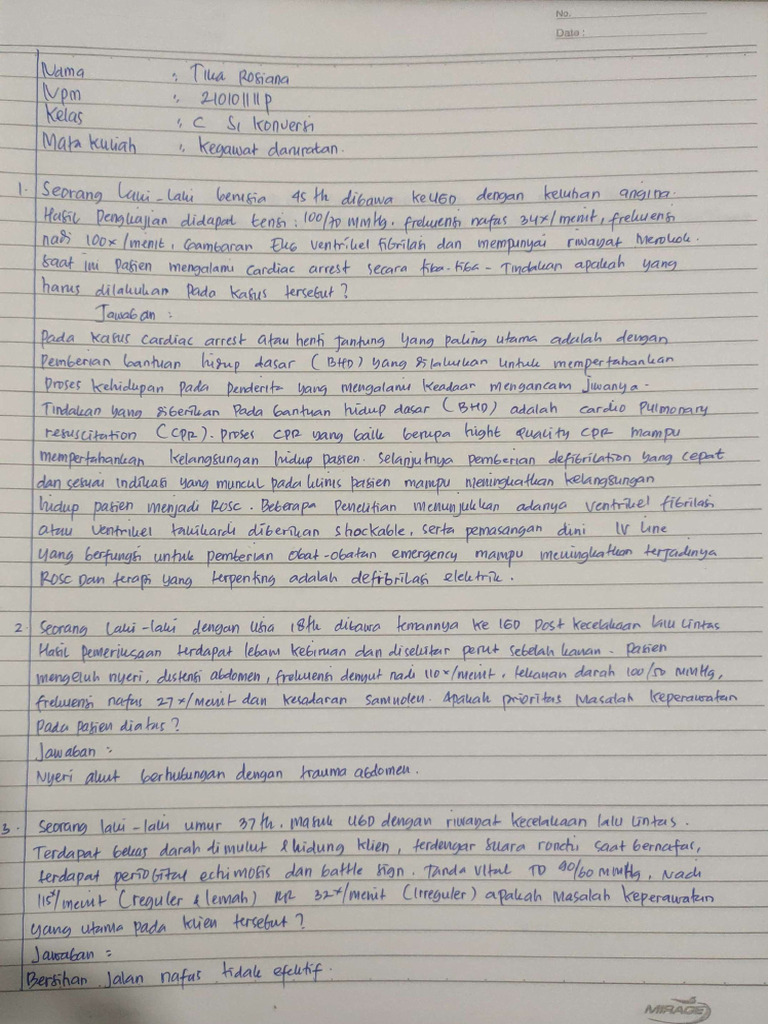 No.
Date :
Nama : Tika Rosiana
Npm : 210101111p
Kelas : C S1 Konversi
Mata kuliah : Kegawat daruratan.
1. Seorang laki-laki berusia 45 th dibawa ke UGD dengan keluhan angina.
Hasil Pengkajian didapat tensi : 100/70 mmHg, frekuensi nafas 34x/menit, frekuensi
nadi 100x/menit, Gambaran EKG ventrikel fibrilasi dan mempunyai riwayat Merokok.
Saat ini Pasien mengalami cardiac arrest secara tiba-tiba - Tindakan apakah yang
harus dilakukan Pada Kasus tersebut ?
Jawaban :
Pada kasus cardiac arrest atau henti jantung yang paling utama adalah dengan
Pemberian bantuan hidup dasar (BHD) yang dilakukan untuk mempertahankan
Proses kehidupan pada penderita yang mengalami keadaan mengancam jiwanya -
Tindakan yang diberikan Pada bantuan hidup dasar (BHD) adalah cardio Pulmonary
resuscitation (CPR). Proses CPR yang baik berupa hight quality CPR mampu
mempertahankan kelangsungan hidup pasien. Selanjutnya pemberian defibrilation yang cepat
dan sesuai indikasi yang muncul pada klinis pasien mampu meningkatkan kelangsungan
hidup pasien menjadi ROSC. Beberapa Penelitian menunjukkan adanya ventrikel fibrilasi
atau ventrikel takikardi diberikan shockable, serta pemasangan dini IV line
yang berfungsi untuk pemberian obat-obatan emergency mampu meningkatkan terjadinya
ROSC Dan terapi yang terpenting adalah defibrilasi elektrik.
2. Seorang laki-laki dengan usia 18th dibawa temannya ke IGD post kecelakaan lalu lintas
Hasil pemeriksaan terdapat lebam kebiruan dan disekitar perut sebelah kanan. Pasien
mengeluh nyeri, distensi abdomen, frekuensi denyut nadi 110x/menit, tekanan darah 100/50 mmHg,
frekuensi nafas 27x/menit dan kesadaran samnolen. Apakah prioritas Masalah keperawatan
Pada pasien diatas ?
Jawaban :
Nyeri akut berhubungan dengan trauma abdomen.
3. Seorang laki-laki umur 37th. masuk UGD dengan riwayat kecelakaan lalu lintas.
Terdapat bekas darah dimulut & hidung klien, terdengar suara ronchi saat bernafas,
terdapat periorbital echimosis dan battle sign. Tanda vital TD 90/60 mmHg, Nadi
115x/menit (reguler & lemah) RR 32x/menit (irreguler) apakah Masalah keperawatan
yang utama pada klien tersebut ?
Jawaban :
Bersihan Jalan nafas tidak efektif.
MIRAGE